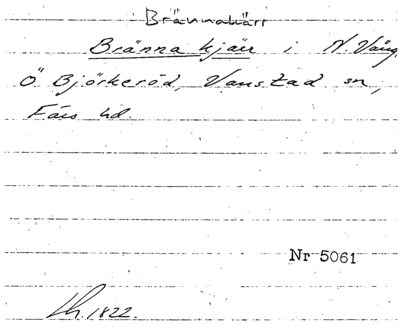 Brännakärr
Bränna kjärr i N. Vång.
Ö Björkeröd, Vanstad sn,
Färs hd.
Nr 5061
Lh. 1822.